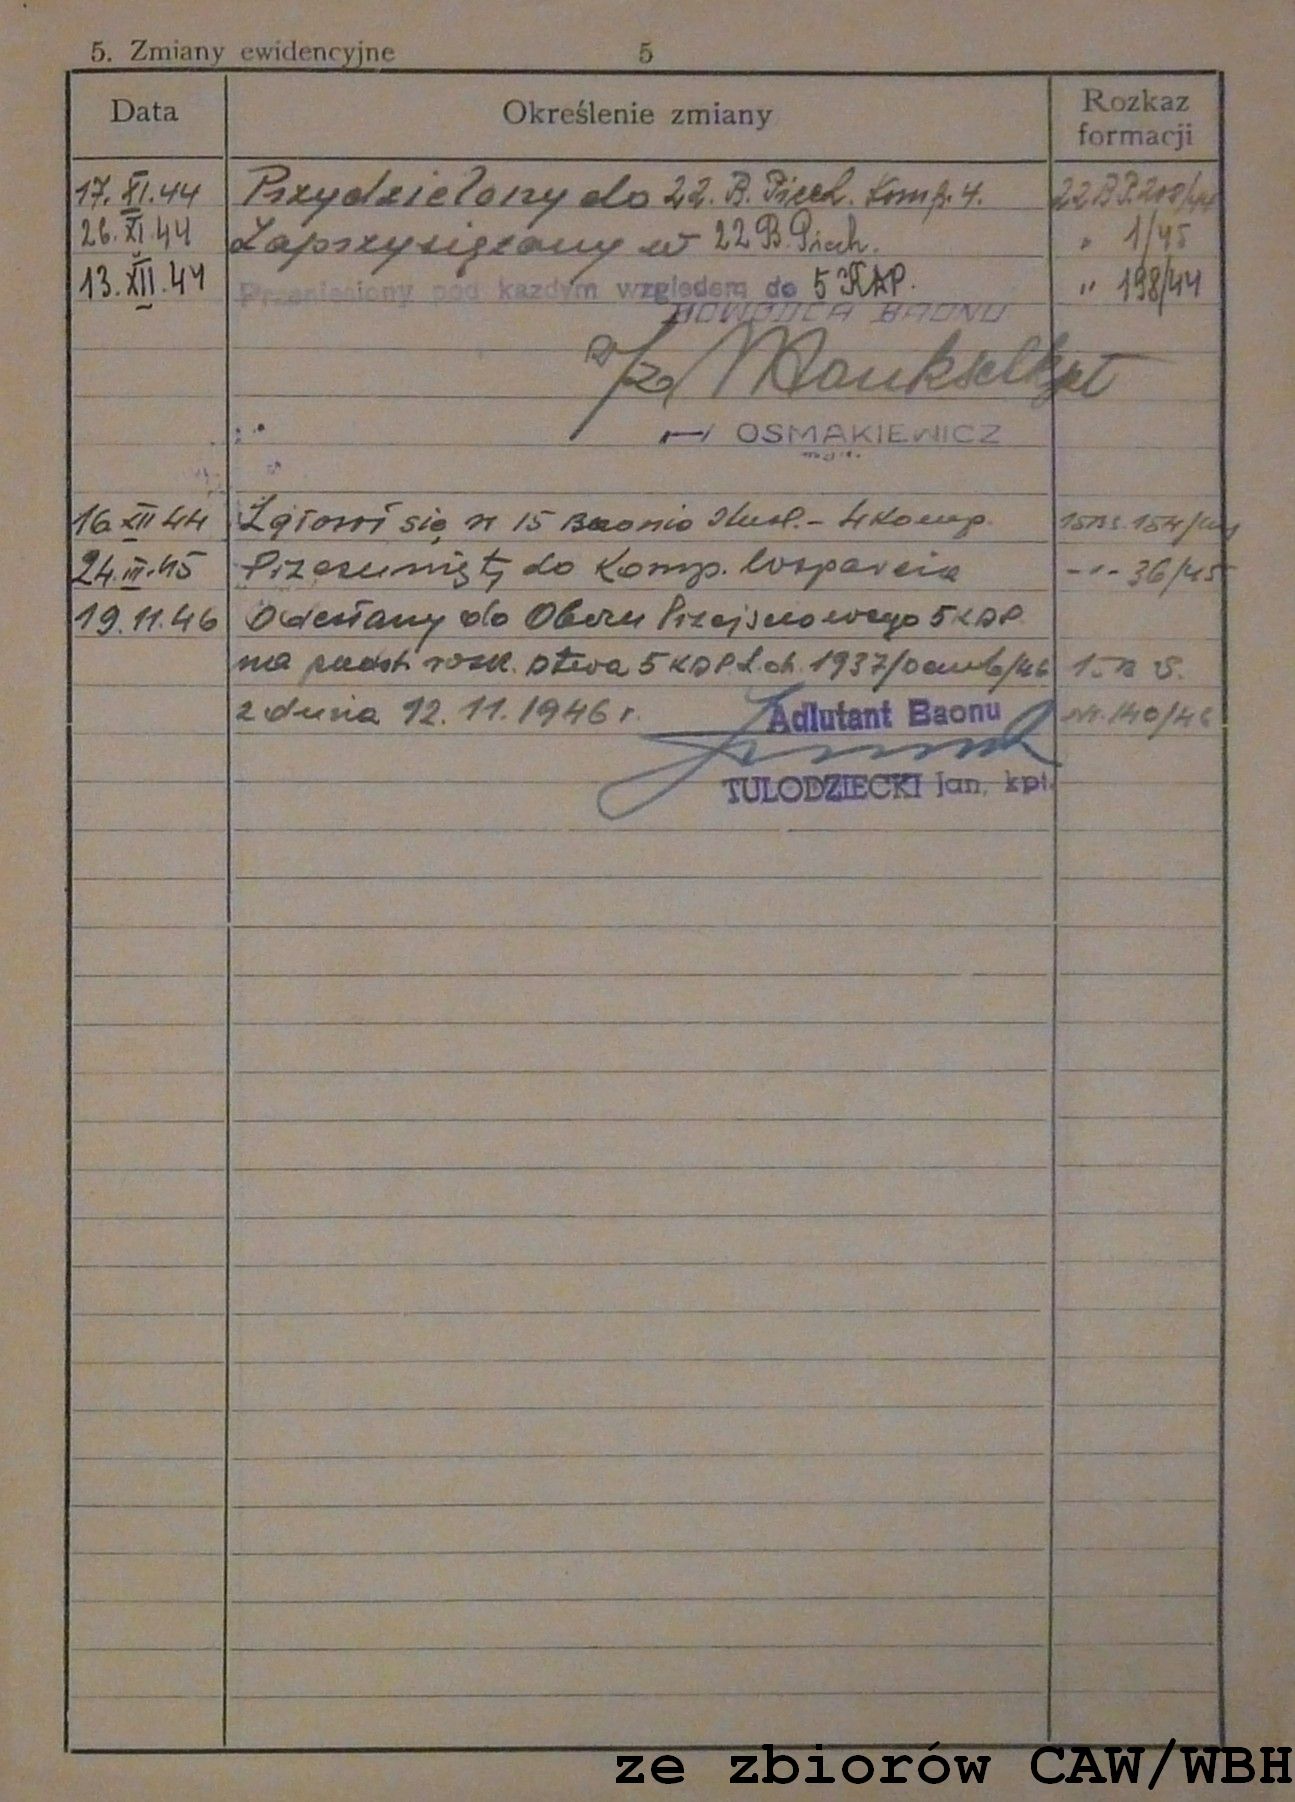 5. Zmiany ewidencyjne 5
Data Określenie zmiany Rozkaz formacji
17.XI.44 Przydzielony do 22. B. Piech. Komp. 4. 22 B.P. 200/44
26.XI.44 Zaprzysiężony w 22 B. Piech. " 1/45
13.XII.44 Przeniesiony pod każdym względem do 5 KDP. " 198/44
DOWÓDCA BAONU
w/z
OSMAKIEWICZ
mjr.
16.XII.44 Zgłosił się w 15 Baonie - 4 Komp. 154/44
24.III.45 Przesunięty do Komp. Wsparcia -"- 36/45
19.11.46 Odesłany do Obozu Przejściowego 5 KDP
na podst. rozk. D-twa 5 KDP L.dz. 1937/46 15 B S.
z dnia 12.11.1946 r. Nr. 140/46
Adiutant Baonu
TULODZIECKI Jan, kpt.
ze zbiorów CAW/WBH